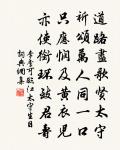 道路盡歌賢太守
祈頌萬人同一口
只應憫及黃衣兒
亦使銜環君壽
李季可臨江太守生日
詞典網集